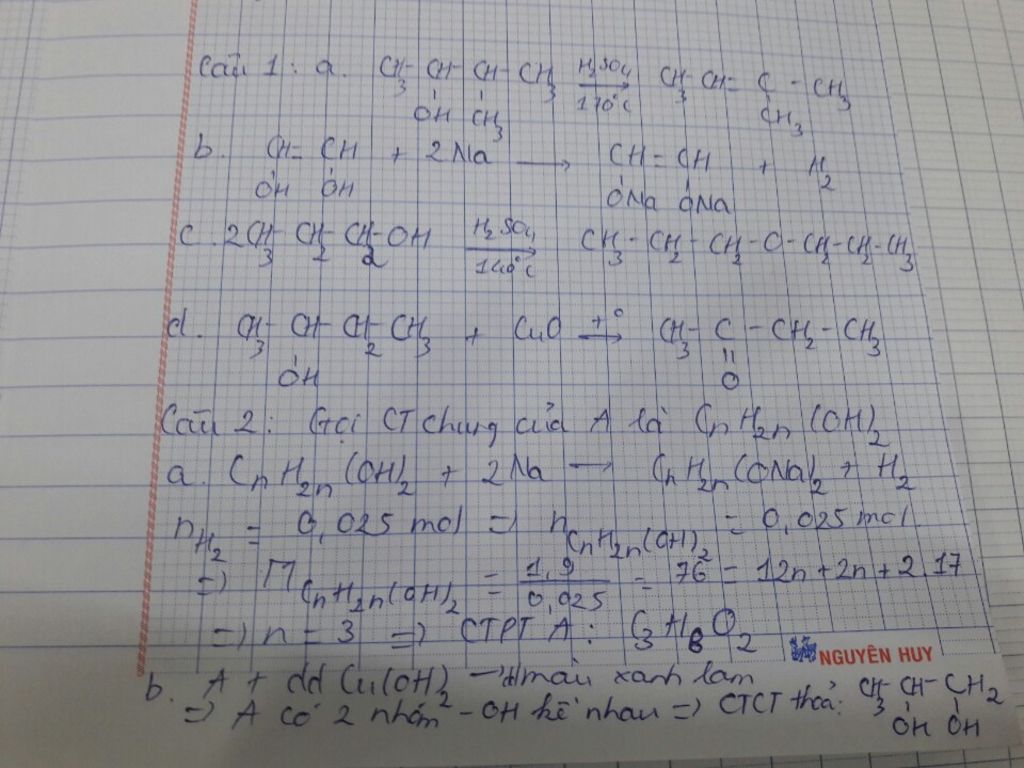 Câu 1: a. CH3- CH- CH- CH3 H2SO4 170°C CH3 CH= C - CH3
OH CH3 CH3
b. CH= CH + 2Na → CH=CH + H2
OH OH ONa ONa
c. 2CH3- CH2- CH2OH H2SO4 140°C CH3-CH2-CH2-O-CH2-CH2-CH3
d. CH3- CH- CH2 CH3 + CuO t° → CH3- C - CH2 - CH3
OH O
Câu 2: Gọi CT chung của A là CnH2n(OH)2
a. CnH2n(OH)2 + 2Na → CnH2n(ONa)2 + H2
nH2 = 0,025 mol => nCnH2n(OH)2 = 0,025 mol
=> MCnH2n(OH)2 = 1,9 / 0,025 = 76 = 12n+2n+2.17
=> n = 3 => CTPT A: C3H8O2
NGUYÊN HUY
b. A + dd Cu(OH)2 → màu xanh lam
=> A có 2 nhóm -OH kề nhau => CTCT thỏa: CH3- CH- CH2
OH OH